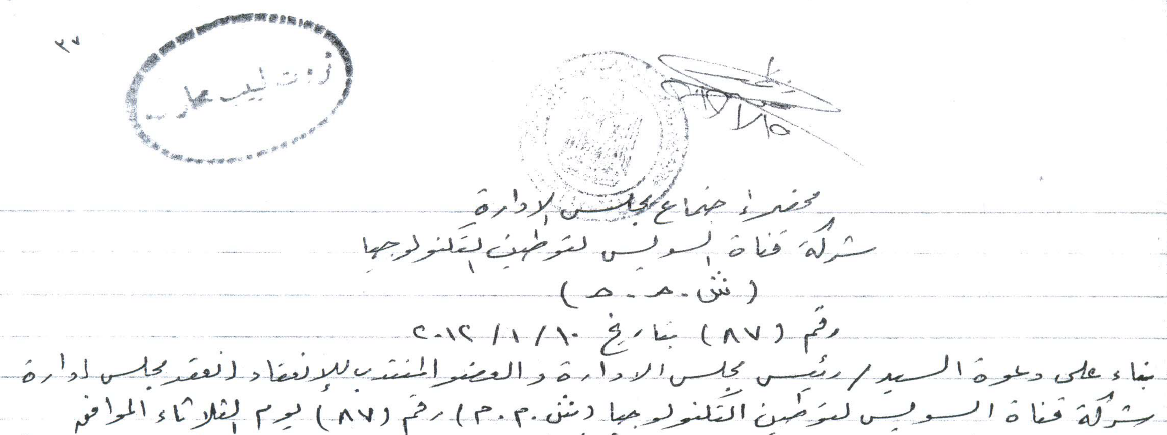 ٣٧
محضر اجتماع مجلس الإدارة
شركة قناة السويس لتوطين التكنولوجيا
(ش.م.م)
رقم (٨٧) بتاريخ ١٠/١/٢٠١٢
بناء على دعوة السيد/ رئيس مجلس الادارة والعضو المنتدب للإنعقاد انعقد مجلس ادارة
شركة قناة السويس لتوطين التكنولوجيا (ش.م.م) رقم (٨٧) يوم الثلاثاء الموافق